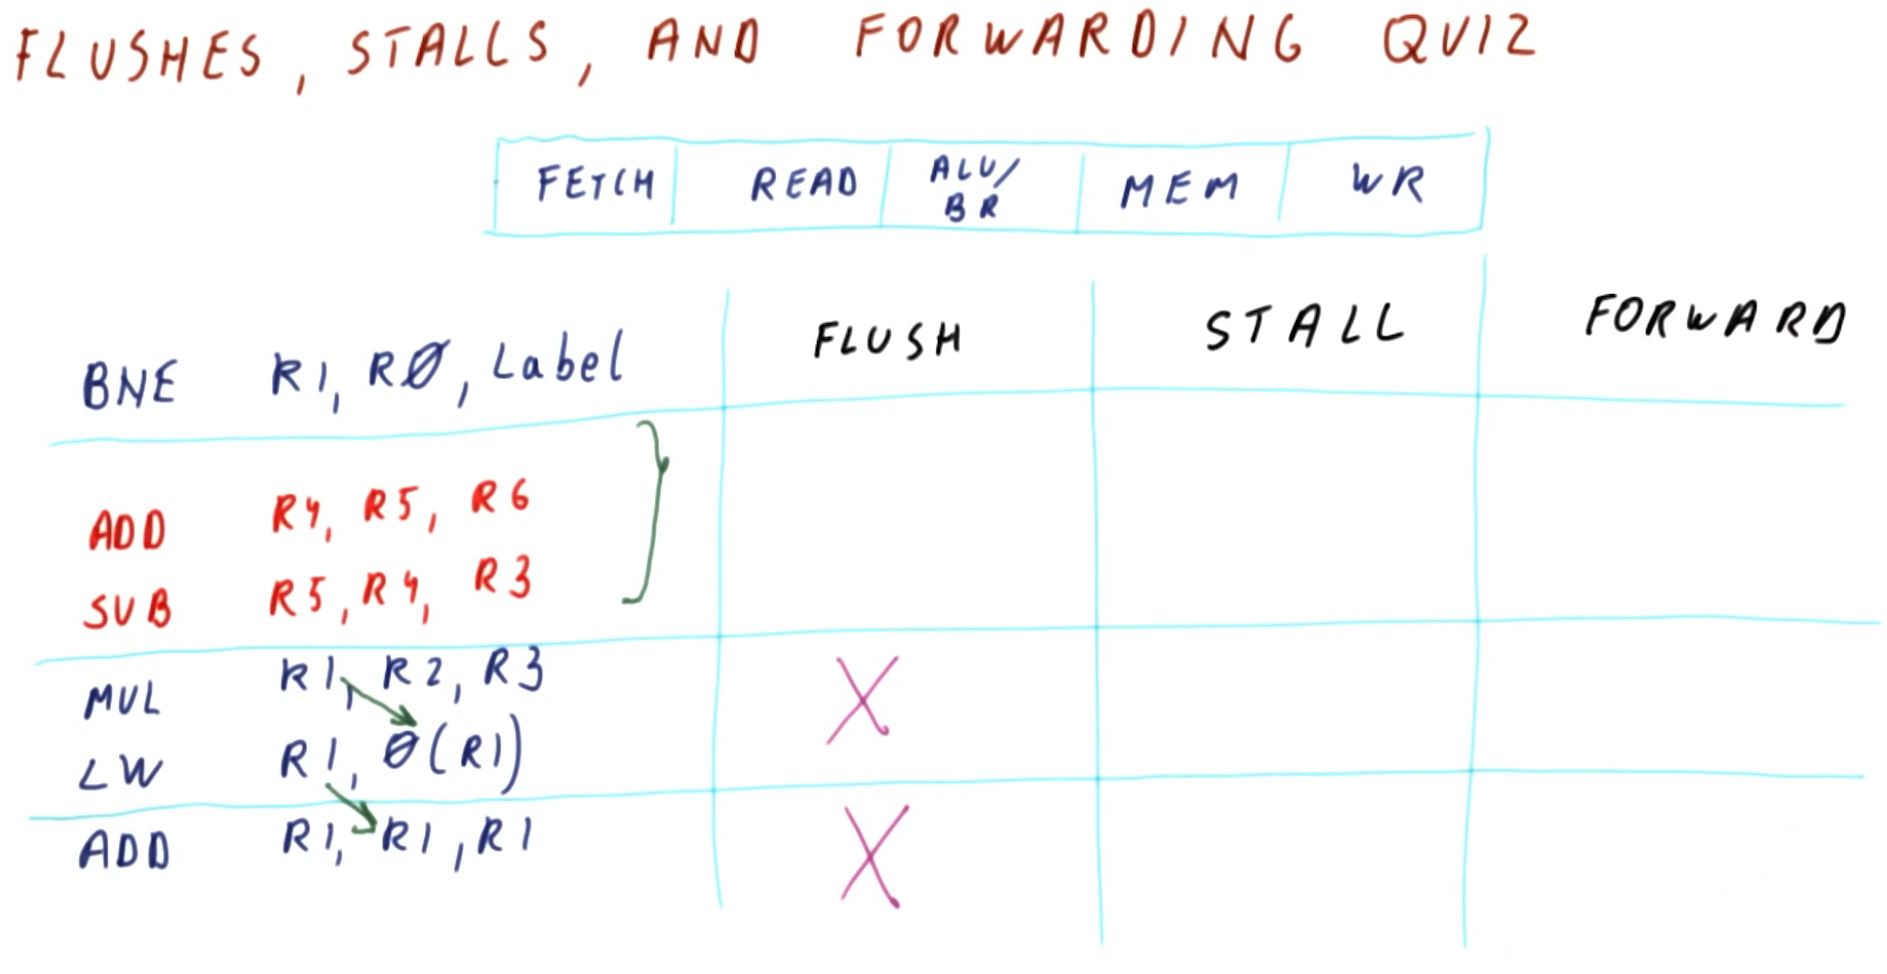 FLUSHES, STALLS, AND FORWARDING QUIZ
FETCH READ ALU/BR MEM WR
FLUSH STALL FORWARD
BNE R1, RØ, Label
ADD R4, R5, R6
SUB R5, R4, R3
MUL R1, R2, R3
LW R1, Ø(R1)
ADD R1, R1, R1